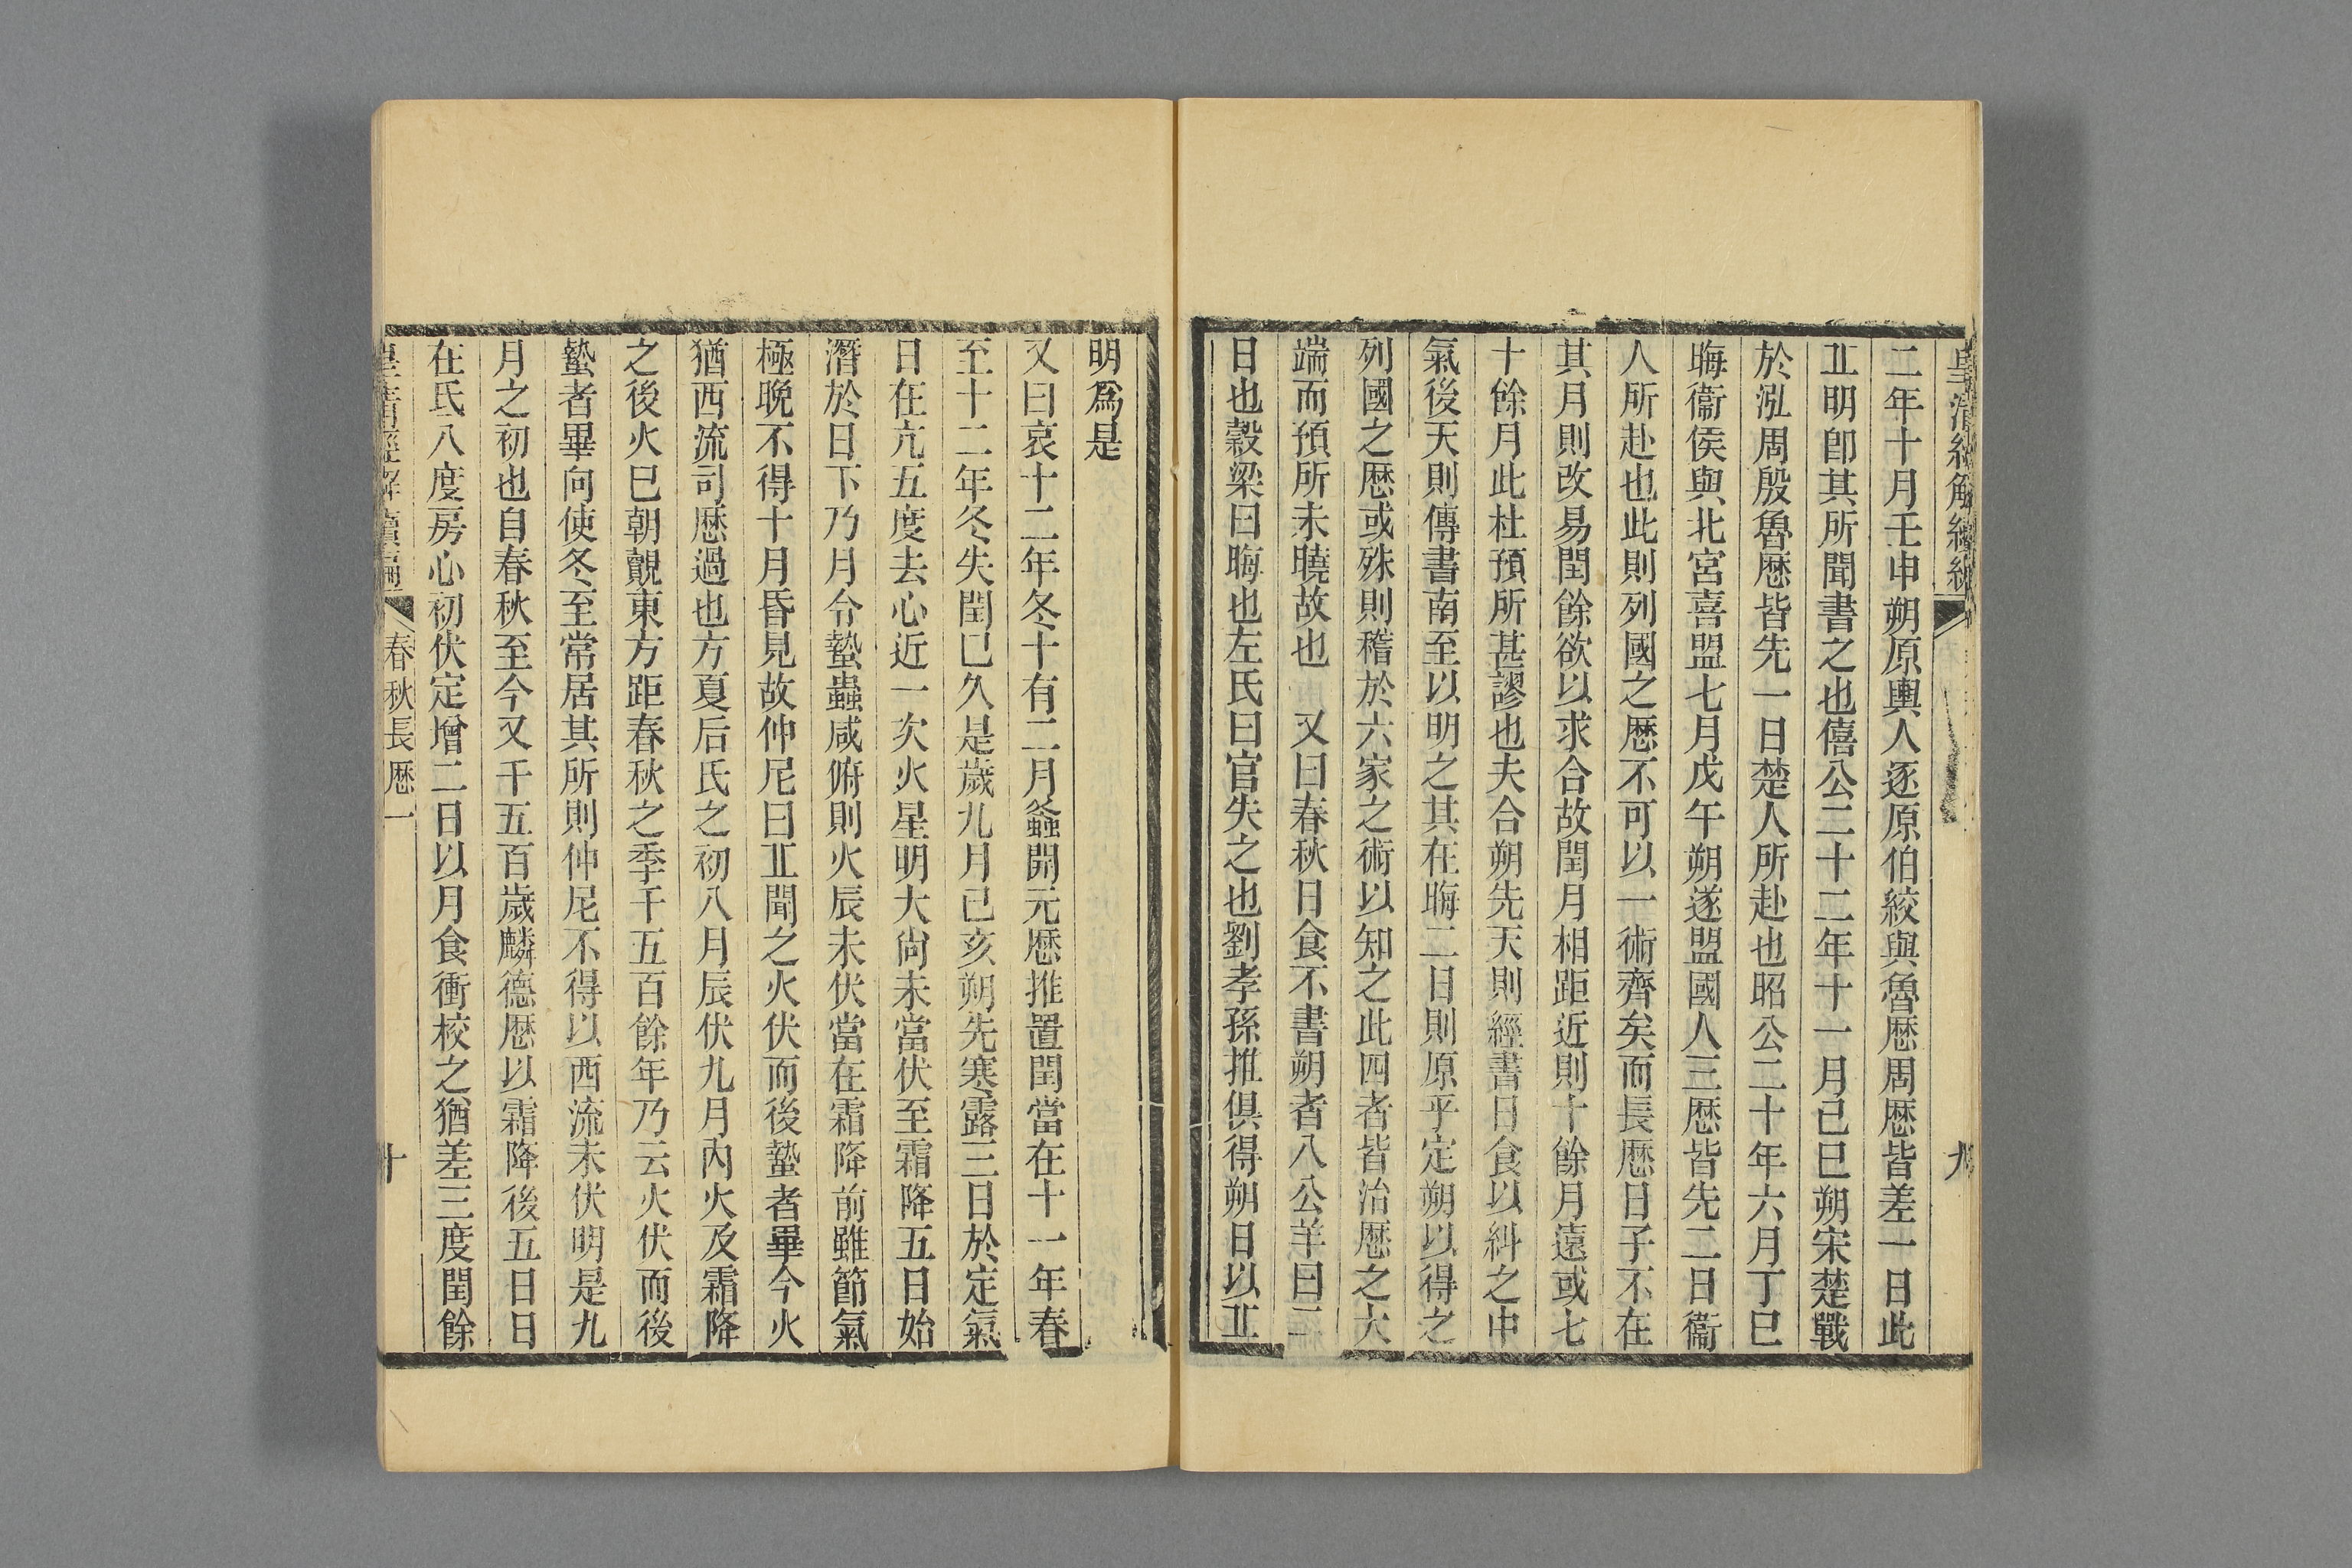 皇清經解續編
九
二年十月壬申朔原輿人逐原伯絞與魯厯周厯皆差一日此
丘明卽其所聞書之也僖公二十二年十一月己巳朔宋楚戰
於泓周殷魯厯皆先一日楚人所赴也昭公二十年六月丁巳
晦衞侯與北宮喜盟七月戊午朔遂盟國人三厯皆先二日衞
人所赴也此則列國之厯不可以一術齊矣而長厯日子不在
其月則改易閏餘欲以求合故閏月相距近則十餘月遠或七
十餘月此杜預所甚謬也夫合朔先天則經書日食以糾之中
氣後天則傳書南至以明之其在晦二日則原乎定朔以得之
列國之厯或殊則稽於六家之術以知之此四者皆治厯之大
端而預所未曉故也 又曰春秋日食不書朔者八公羊曰二
日也穀梁曰晦也左氏曰官失之也劉孝孫推俱得朔日以丘
明爲是
又曰哀十二年冬十有二月螽開元厯推置閏當在十一年春
至十二年冬失閏已久是歲九月己亥朔先寒露三日於定氣
日在亢五度去心近一次火星明大尙未當伏至霜降五日始
潛於日下乃月令蟄蟲咸俯則火辰未伏當在霜降前雖節氣
極晚不得十月昏見故仲尼曰丘聞之火伏而後蟄者畢今火
猶西流司厯過也方夏后氏之初八月辰伏九月內火及霜降
之後火已朝覿東方距春秋之季千五百餘年乃云火伏而後
蟄者畢向使冬至常居其所則仲尼不得以西流未伏明是九
月之初也自春秋至今又千五百歲麟德厯以霜降後五日日
在氐八度房心初伏定增二日以月食衝校之猶差三度閏餘
皇淸經解續編
春秋長厯一
十